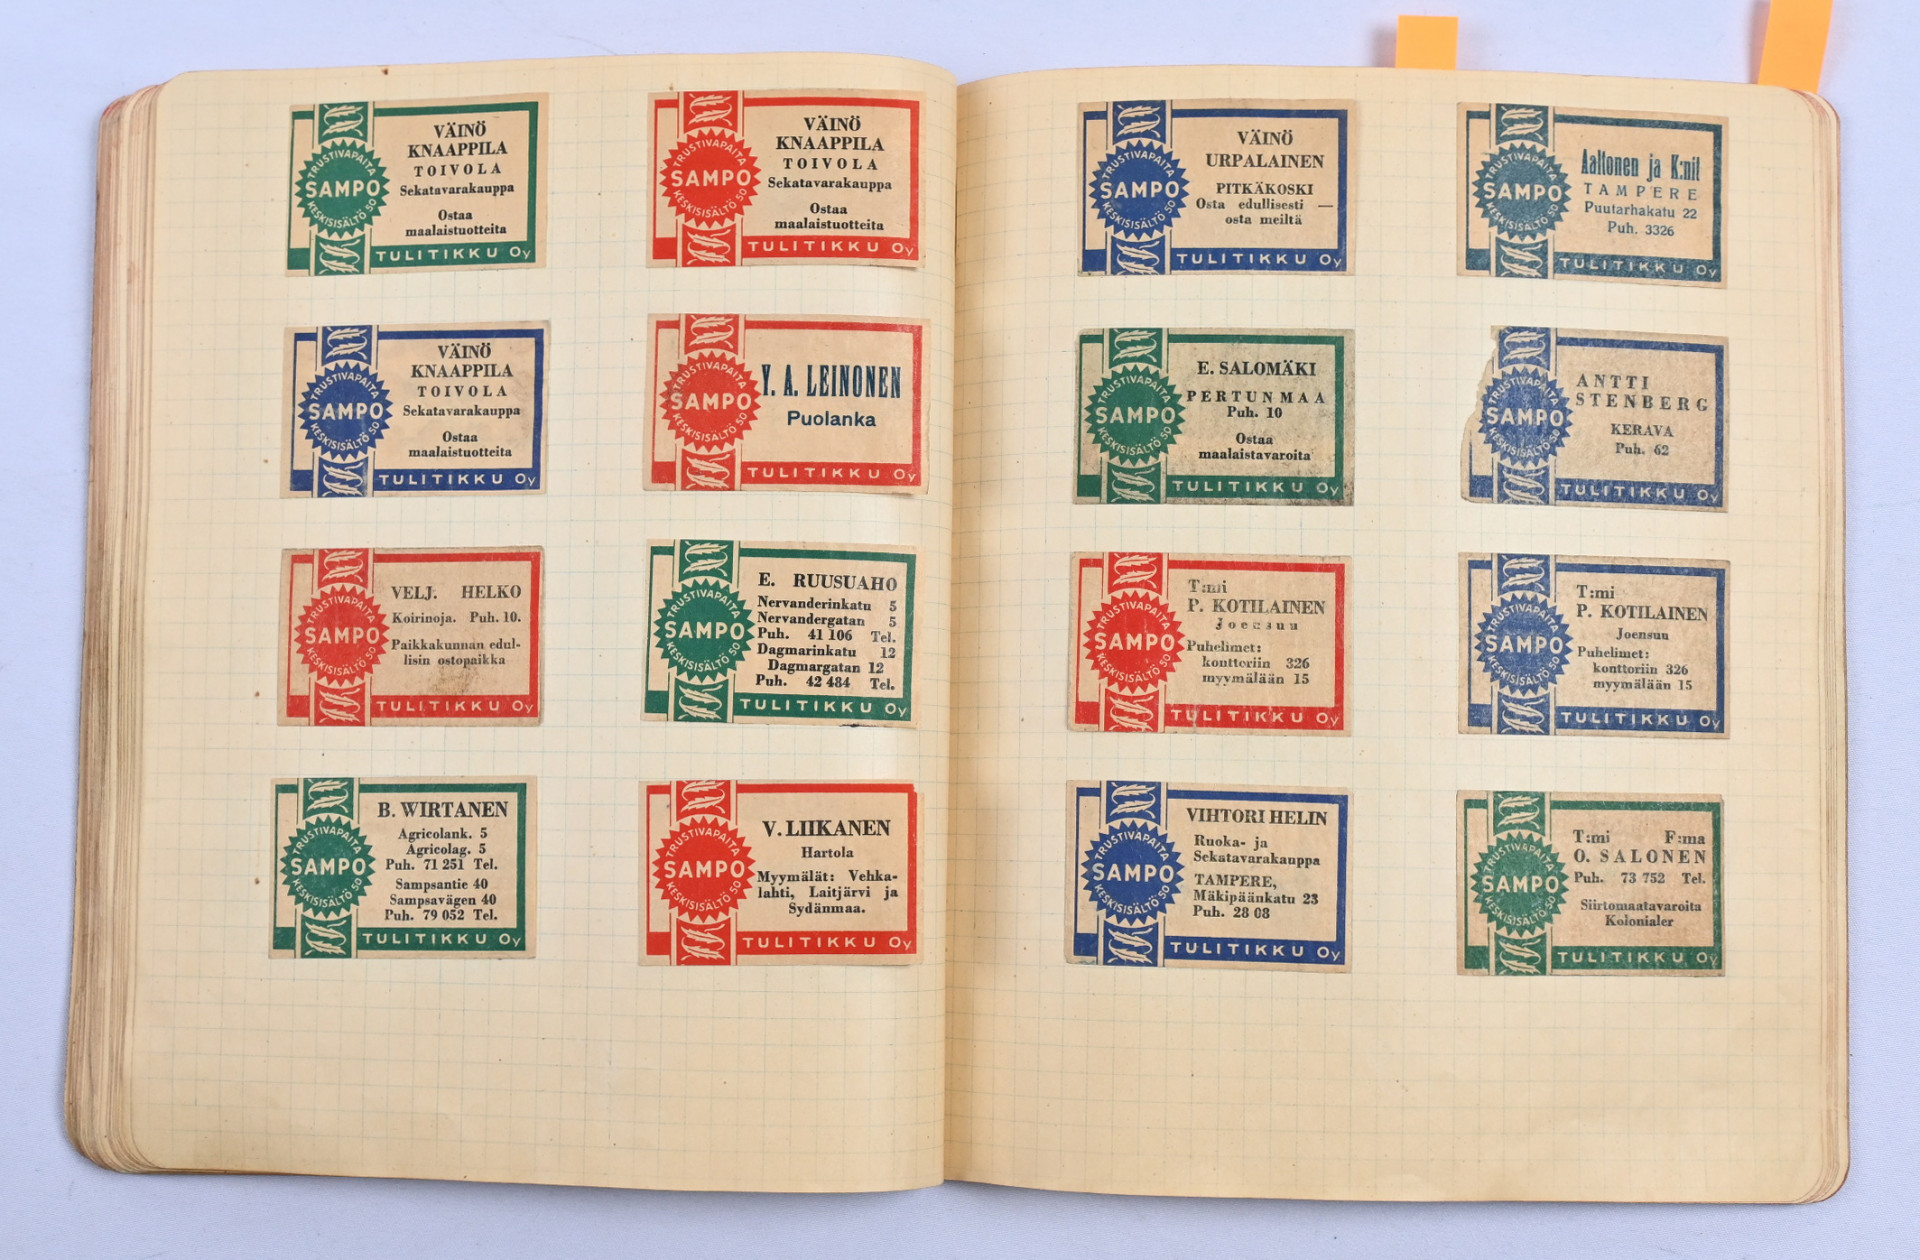 VÄINÖ
KNAAPPILA
TOIVOLA
Sekatavarakauppa
Ostaa
maalaistuotteita
TRUSTIVAPAITA
SAMPO
KESKISISÄLTÖ 50
TULITIKKU Oy
VÄINÖ
KNAAPPILA
TOIVOLA
Sekatavarakauppa
Ostaa
maalaistuotteita
TRUSTIVAPAITA
SAMPO
KESKISISÄLTÖ 50
TULITIKKU Oy
VÄINÖ
KNAAPPILA
TOIVOLA
Sekatavarakauppa
Ostaa
maalaistuotteita
TRUSTIVAPAITA
SAMPO
KESKISISÄLTÖ 50
TULITIKKU Oy
Y. A. LEINONEN
Puolanka
TRUSTIVAPAITA
SAMPO
KESKISISÄLTÖ 50
TULITIKKU Oy
VELJ. HELKO
Koirinoja. Puh. 10.
Paikkakunnan edul-
lisin ostopaikka
TRUSTIVAPAITA
SAMPO
KESKISISÄLTÖ 50
TULITIKKU Oy
E. RUUSUAHO
Nervanderinkatu 5
Nervandergatan 5
Puh. 41 106 Tel.
Dagmarinkatu 12
Dagmargatan 12
Puh. 42 484 Tel.
TRUSTIVAPAITA
SAMPO
KESKISISÄLTÖ 50
TULITIKKU Oy
B. WIRTANEN
Agricolank. 5
Agricolag. 5
Puh. 71 251 Tel.
Sampsantie 40
Sampsavägen 40
Puh. 79 052 Tel.
TRUSTIVAPAITA
SAMPO
KESKISISÄLTÖ 50
TULITIKKU Oy
V. LIIKANEN
Hartola
Myymälät: Vehka-
lahti, Laitjärvi ja
Sydänmaa.
TRUSTIVAPAITA
SAMPO
KESKISISÄLTÖ 50
TULITIKKU Oy
VÄINÖ
URPALAINEN
PITKÄKOSKI
Osta edullisesti —
osta meiltä
TRUSTIVAPAITA
SAMPO
KESKISISÄLTÖ 50
TULITIKKU Oy
Aaltonen ja K:nit
TAMPERE
Puutarhakatu 22
Puh. 3326
TRUSTIVAPAITA
SAMPO
KESKISISÄLTÖ 50
TULITIKKU Oy
E. SALOMÄKI
PERTUNMAA
Puh. 10
Ostaa
maalaistavaroita
TRUSTIVAPAITA
SAMPO
KESKISISÄLTÖ 50
TULITIKKU Oy
ANTTI
STENBERG
KERAVA
Puh. 62
TRUSTIVAPAITA
SAMPO
KESKISISÄLTÖ 50
TULITIKKU Oy
T:mi
P. KOTILAINEN
Joensuu
Puhelimet:
konttoriin 326
myymälään 15
TRUSTIVAPAITA
SAMPO
KESKISISÄLTÖ 50
TULITIKKU Oy
T:mi
P. KOTILAINEN
Joensuu
Puhelimet:
konttoriin 326
myymälään 15
TRUSTIVAPAITA
SAMPO
KESKISISÄLTÖ 50
TULITIKKU Oy
VIHTORI HELIN
Ruoka- ja
Sekatavarakauppa
TAMPERE,
Mäkipäänkatu 23
Puh. 28 08
TRUSTIVAPAITA
SAMPO
KESKISISÄLTÖ 50
TULITIKKU Oy
T:mi F:ma
O. SALONEN
Puh. 73 752 Tel.
Siirtomaatavaroita
Kolonialer
TRUSTIVAPAITA
SAMPO
KESKISISÄLTÖ 50
TULITIKKU Oy